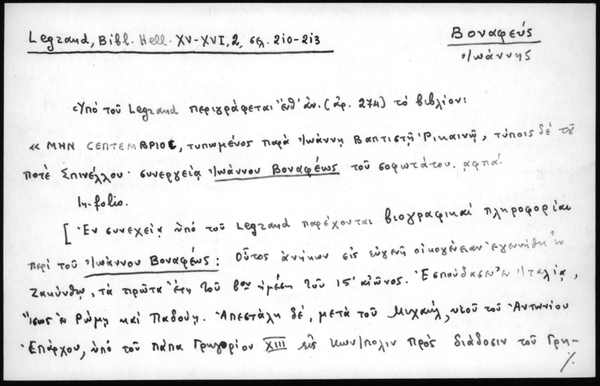 Legrand, Bibl. Hell. XV-XVI, 2, σελ. 210-213
Βοναφεύς
Ἰωάννης
Ὑπό τοῦ Legrand περιγράφεται ἐνθ' ἀν. (ἀρ. 274) τό βιβλίον:
« ΜΗΝ ϹΕΠΤΕΜΒΡΙΟϹ, τυπωμένος παρά Ἰωάννῃ Βαπτιστῇ Ῥικαινῇ, τύποις δέ τοῦ
ποτέ Σπινέλλου· συνεργείᾳ Ἰωάννου Βοναφέως τοῦ σοφωτάτου. αφπα΄.
In-folio.
[ Ἐν συνεχείᾳ ὑπό τοῦ Legrand παρέχονται βιογραφικαί πληροφορίαι
περί τοῦ Ἰωάννου Βοναφέως: Οὗτος ἀνήκων εἰς εὐγενῆ οἰκογένειαν ἐγεννήθη ἐν
Ζακύνθῳ, τά πρῶτα ἔτη τοῦ βου ἡμίση τοῦ 15' αἰῶνος. Ἐσπούδασεν ἐν Ἰταλίᾳ,
ἴσως ἐν Ρώμῃ καί Παδούῃ. Ἀπεστάλη δέ, μετά τοῦ Μιχαήλ, υἱοῦ τοῦ Ἀντωνίου
Ἐπάρχου, ὑπό τοῦ πάπα Γρηγορίου XIII εἰς Κων/πολιν πρός διάδοσιν τοῦ Γρη-
./.